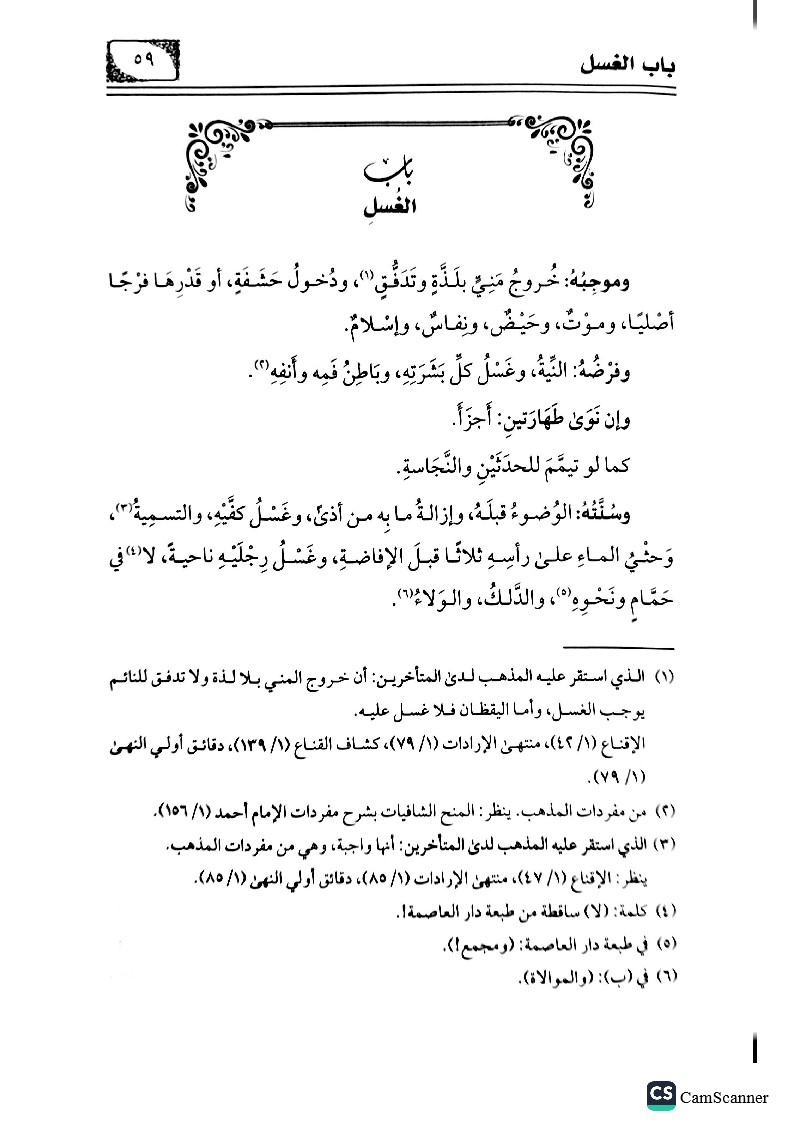 باب الغسل
٥٩
باب
الغُسلِ
وموجِبُهُ: خُروجُ مَنِيٍّ بلَذَّةٍ وتَدَفُّقٍ(١)، ودُخولُ حَشَفَةٍ، أو قَدْرِهَا فرْجًا
أصْليًا، وموْتٌ، وحَيْضٌ، ونِفاسٌ، وإسْلامٌ.
وفرْضُهُ: النِّيةُ، وغَسْلُ كلِّ بَشَرَتِهِ، وبَاطِنُ فَمِه وأَنفِهِ(٢).
وإن نَوَىٰ طَهَارَتينِ: أَجزَأَ.
كما لو تيمَّمَ للحدَثَيْنِ والنَّجاسةِ.
وسُنَّتُهُ: الوُضوءُ قبلَهُ، وإزالةُ ما بِه من أذىً، وغَسْلُ كفَّيْهِ، والتسميةُ(٣)،
وَحثْيُ الماءِ علىٰ رأسِهِ ثلاثًا قبلَ الإفاضةِ، وغَسْلُ رِجْلَيْهِ ناحيةً، لا(٤) في
حَمَّامٍ ونَحْوِهِ(٥)، والدَّلكُ، والوَلاءُ(٦).
(١) الذي استقر عليه المذهب لدىٰ المتأخرين: أن خروج المني بلا لذة ولا تدفق للنائم
يوجب الغسل، وأما اليقظان فلا غسل عليه.
الإقناع (١/ ٤٢)، منتهىٰ الإرادات (١/ ٧٩)، كشاف القناع (١/ ١٣٩)، دقائق أولي النهىٰ
(١/ ٧٩).
(٢) من مفردات المذهب. ينظر: المنح الشافيات بشرح مفردات الإمام أحمد (١/ ١٥٦).
(٣) الذي استقر عليه المذهب لدىٰ المتأخرين: أنها واجبة، وهي من مفردات المذهب.
ينظر: الإقناع (١/ ٤٧)، منتهىٰ الإرادات (١/ ٨٥)، دقائق أولي النهىٰ (١/ ٨٥).
(٤) كلمة: (لا) ساقطة من طبعة دار العاصمة!.
(٥) في طبعة دار العاصمة: (ومجمع!).
(٦) في (ب): (والموالاة).
CS CamScanner